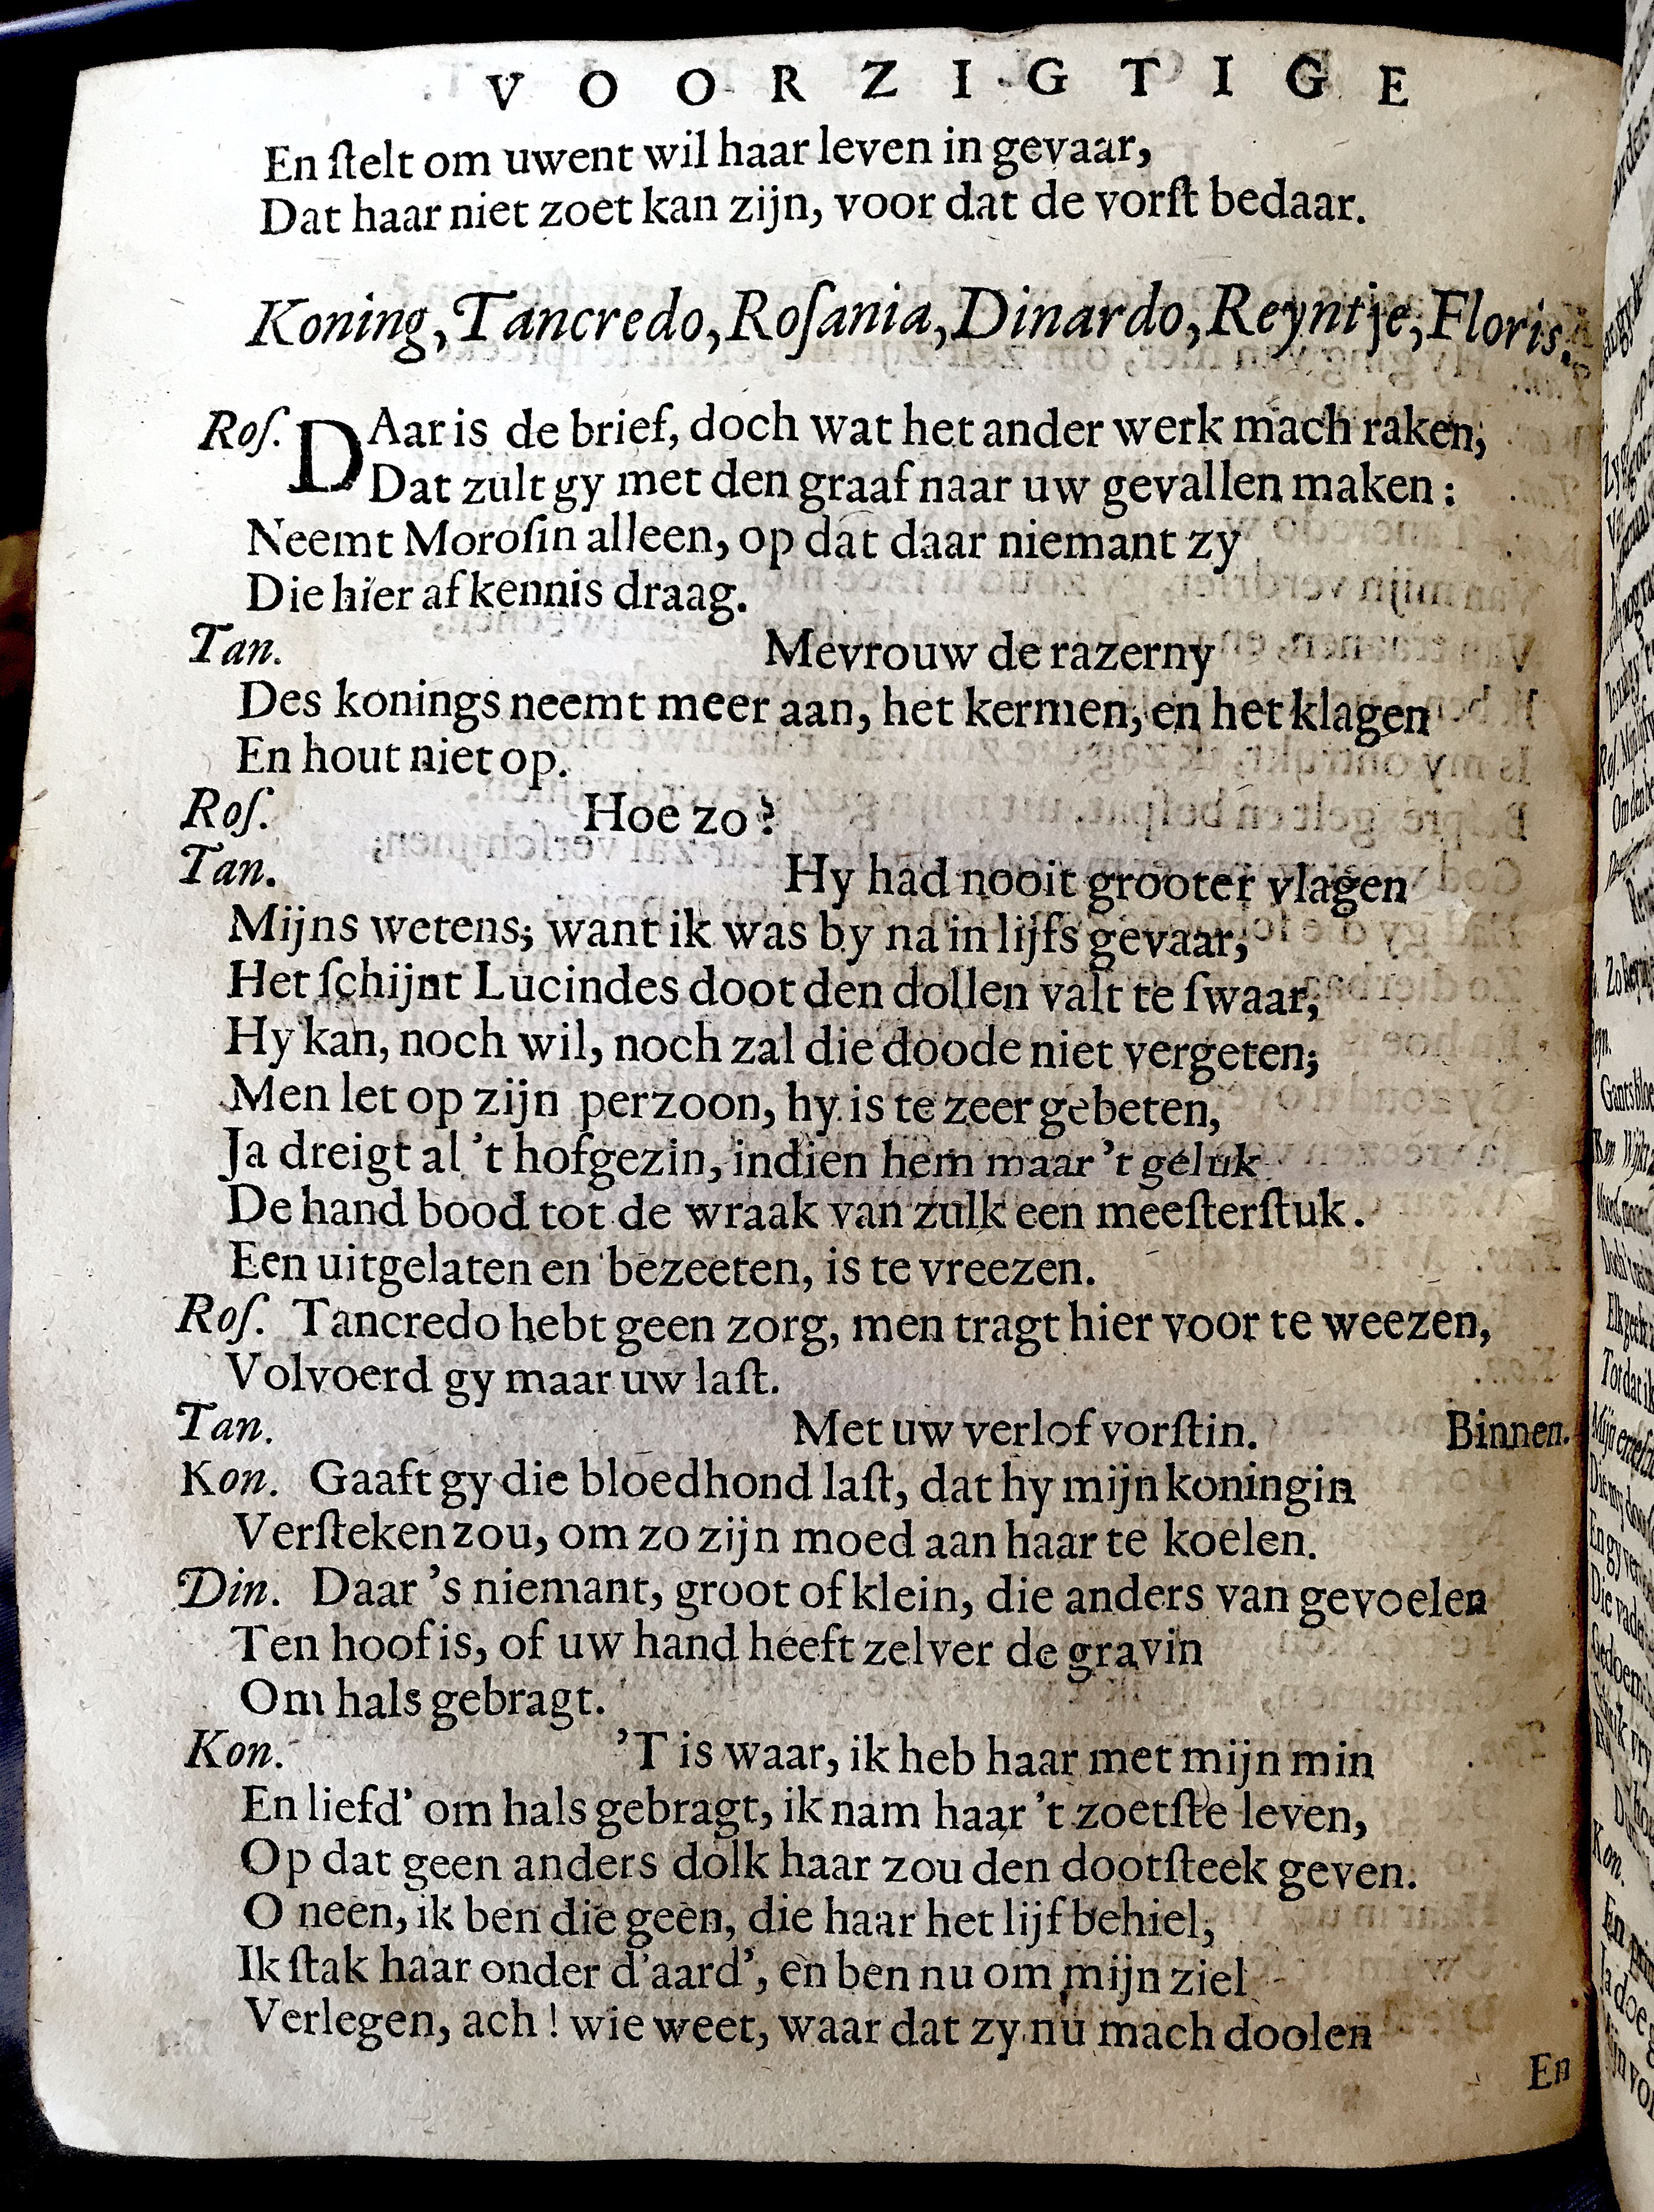 VOORZIGTIGE
En ſtelt om uwent wil haar leven in gevaar,
Dat haar niet zoet kan zijn, voor dat de vorſt bedaar.
Koning, Tancredo, Roſania, Dinardo, Reyntje, Floris.
Roſ. DAar is de brief, doch wat het ander werk mach raken,
Dat zult gy met den graaf naar uw gevallen maken:
Neemt Moroſin alleen, op dat daar niemant zy
Die hier af kennis draag.
Tan. Mevrouw de razerny
Des konings neemt meer aan, het kermen, en het klagen
En hout niet op.
Roſ. Hoe zo?
Tan. Hy had nooit grooter vlagen
Mijns wetens; want ik was by na in lijfs gevaar,
Het ſchijnt Lucindes doot den dollen valt te ſwaar,
Hy kan, noch wil, noch zal die doode niet vergeten;
Men let op zijn perzoon, hy is te zeer gebeten,
Ja dreigt al 't hofgezin, indien hem maar 't geluk
De hand bood tot de wraak van zulk een meeſterſtuk.
Een uitgelaten en bezeeten, is te vreezen.
Roſ. Tancredo hebt geen zorg, men tragt hier voor te weezen,
Volvoerd gy maar uw laſt.
Tan. Met uw verlof vorſtin. Binnen.
Kon. Gaaft gy die bloedhond laſt, dat hy mijn koningin
Verſteken zou, om zo zijn moed aan haar te koelen.
Din. Daar 's niemant, groot of klein, die anders van gevoelen
Ten hoof is, of uw hand heeft zelver de gravin
Om hals gebragt.
Kon. 'T is waar, ik heb haar met mijn min
En liefd' om hals gebragt, ik nam haar 't zoetſte leven,
Op dat geen anders dolk haar zou den dootſteek geven.
O neen, ik ben die geen, die haar het lijf behiel,
Ik ſtak haar onder d'aard', en ben nu om mijn ziel
Verlegen, ach! wie weet, waar dat zy nu mach doolen
En